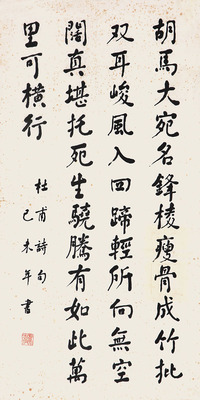 胡馬大宛名鋒棱瘦骨成竹批
双耳峻風入四蹄輕所向無空
闊真堪托死生驍騰有如此萬
里可橫行
杜甫詩句
己未年書